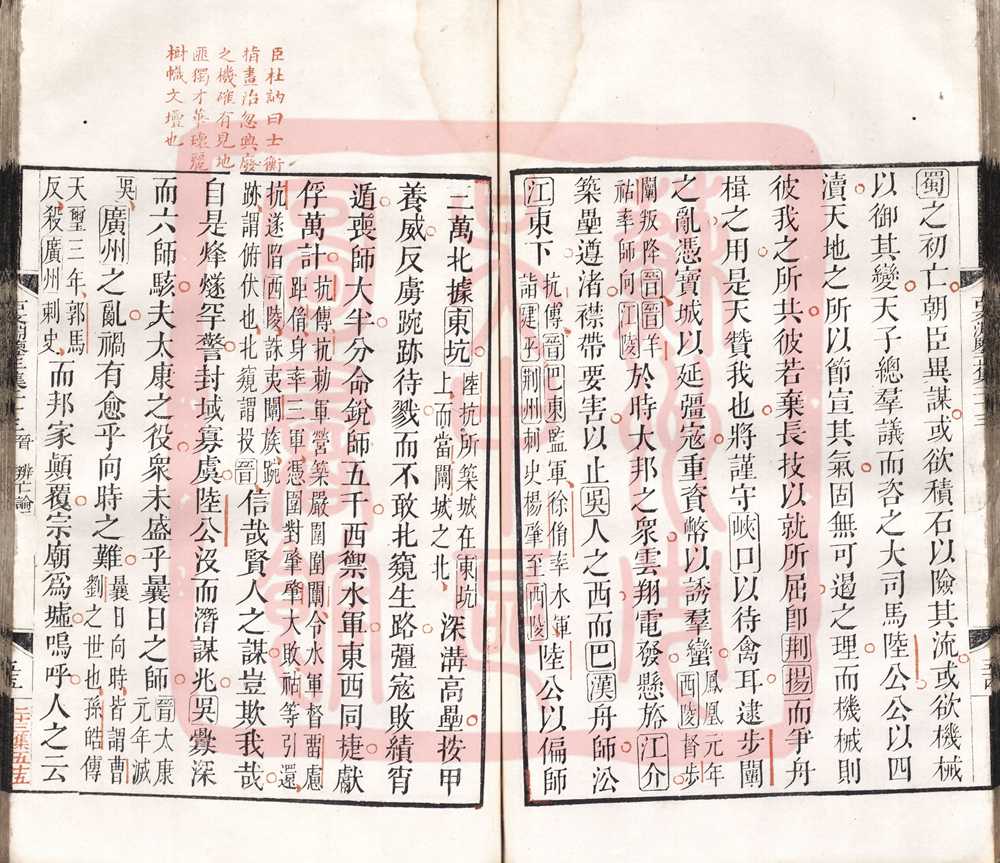 蜀之初亡朝臣異謀或欲積石以險其流或欲機械
以御其變天子總羣議而咨之大司馬陸公公以四
瀆天地之所以節宣其氣固無可遏之理而機械則
彼我之所共彼若棄長技以就所屈卽荆揚而爭舟
楫之用是天贊我也將謹守峽口以待禽耳逮步闡
之亂憑寶城以延彊寇重資幣以誘羣蠻鳳凰元年西陵督步
闡叛降晉晉羊祜率師向江陵於時大邦之衆雲翔電發懸旍江介
築壘遵渚襟帶要害以止吳人之西而巴漢舟師沿
江東下抗傳晉巴東監軍徐僃率水軍詣建平荆州刺史楊肇至西陵陸公以偏師
三萬北據東坑陸抗所築城在東坑上而當闡城之北深溝高壘按甲
養威反虜踠跡待戮而不敢北窺生路彊寇敗績宵
遁喪師大半分命銳師五千西禦水軍東西同捷獻
俘萬計抗傳抗勅軍營築嚴圍圍闡令水軍督畱慮距僃身率三軍憑圍對肇肇大敗祜等引還
抗遂陷西陵誅夷闡族踠跡謂俯伏也北窺謂投晉信哉賢人之謀豈欺我哉
自是烽燧罕警封域寡虞陸公沒而濳謀兆吳釁深
而六師駭夫太康之役衆未盛乎曩日之師晉太康元年滅
吳廣州之亂禍有愈乎向時之難曩日向時皆謂曹劉之世也孫皓傳
天璽三年郭馬反殺廣州刺史而邦家顚覆宗廟爲墟嗚呼人之云
臣杜訥曰士衡
指畫治忽興廢
之機確有見地
匪獨才華瓌麗
樹幟文壇也
晉 辨亡論